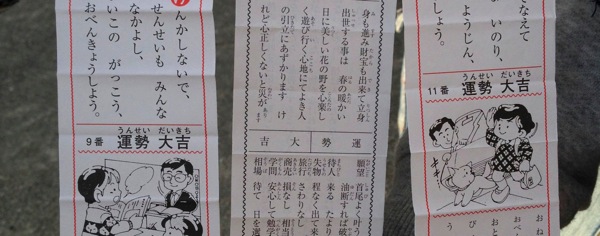 んかしないで、
せんせいも みんな
なかよし、
いこの がっこう、
おべんきょうしよう。
9番 運勢 大吉
うんせい だいきち
身も進み財宝も出来て立身
出世する事は 春の暖かい
日に美しい花の野を心楽し
く遊び行く心地にてよき人
の引立にあずかります け
れど心正しくないと災が。ます
運勢大吉
願望 首尾よく叶う
油断すれば破
待人 来る たより
失物 程なく出て来
旅行 さわりなし
商売 損なし 相当
学問 安心して勉学
相場 待て 日を選
さなえて
い のり、
ようじん、
しょう。
11番 運勢 大吉
うんせい だいきち